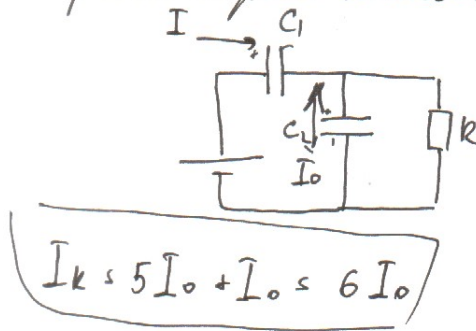 I C₁
+
C₂ + R
I₀
I_R = 5I₀ + I₀ = 6I₀